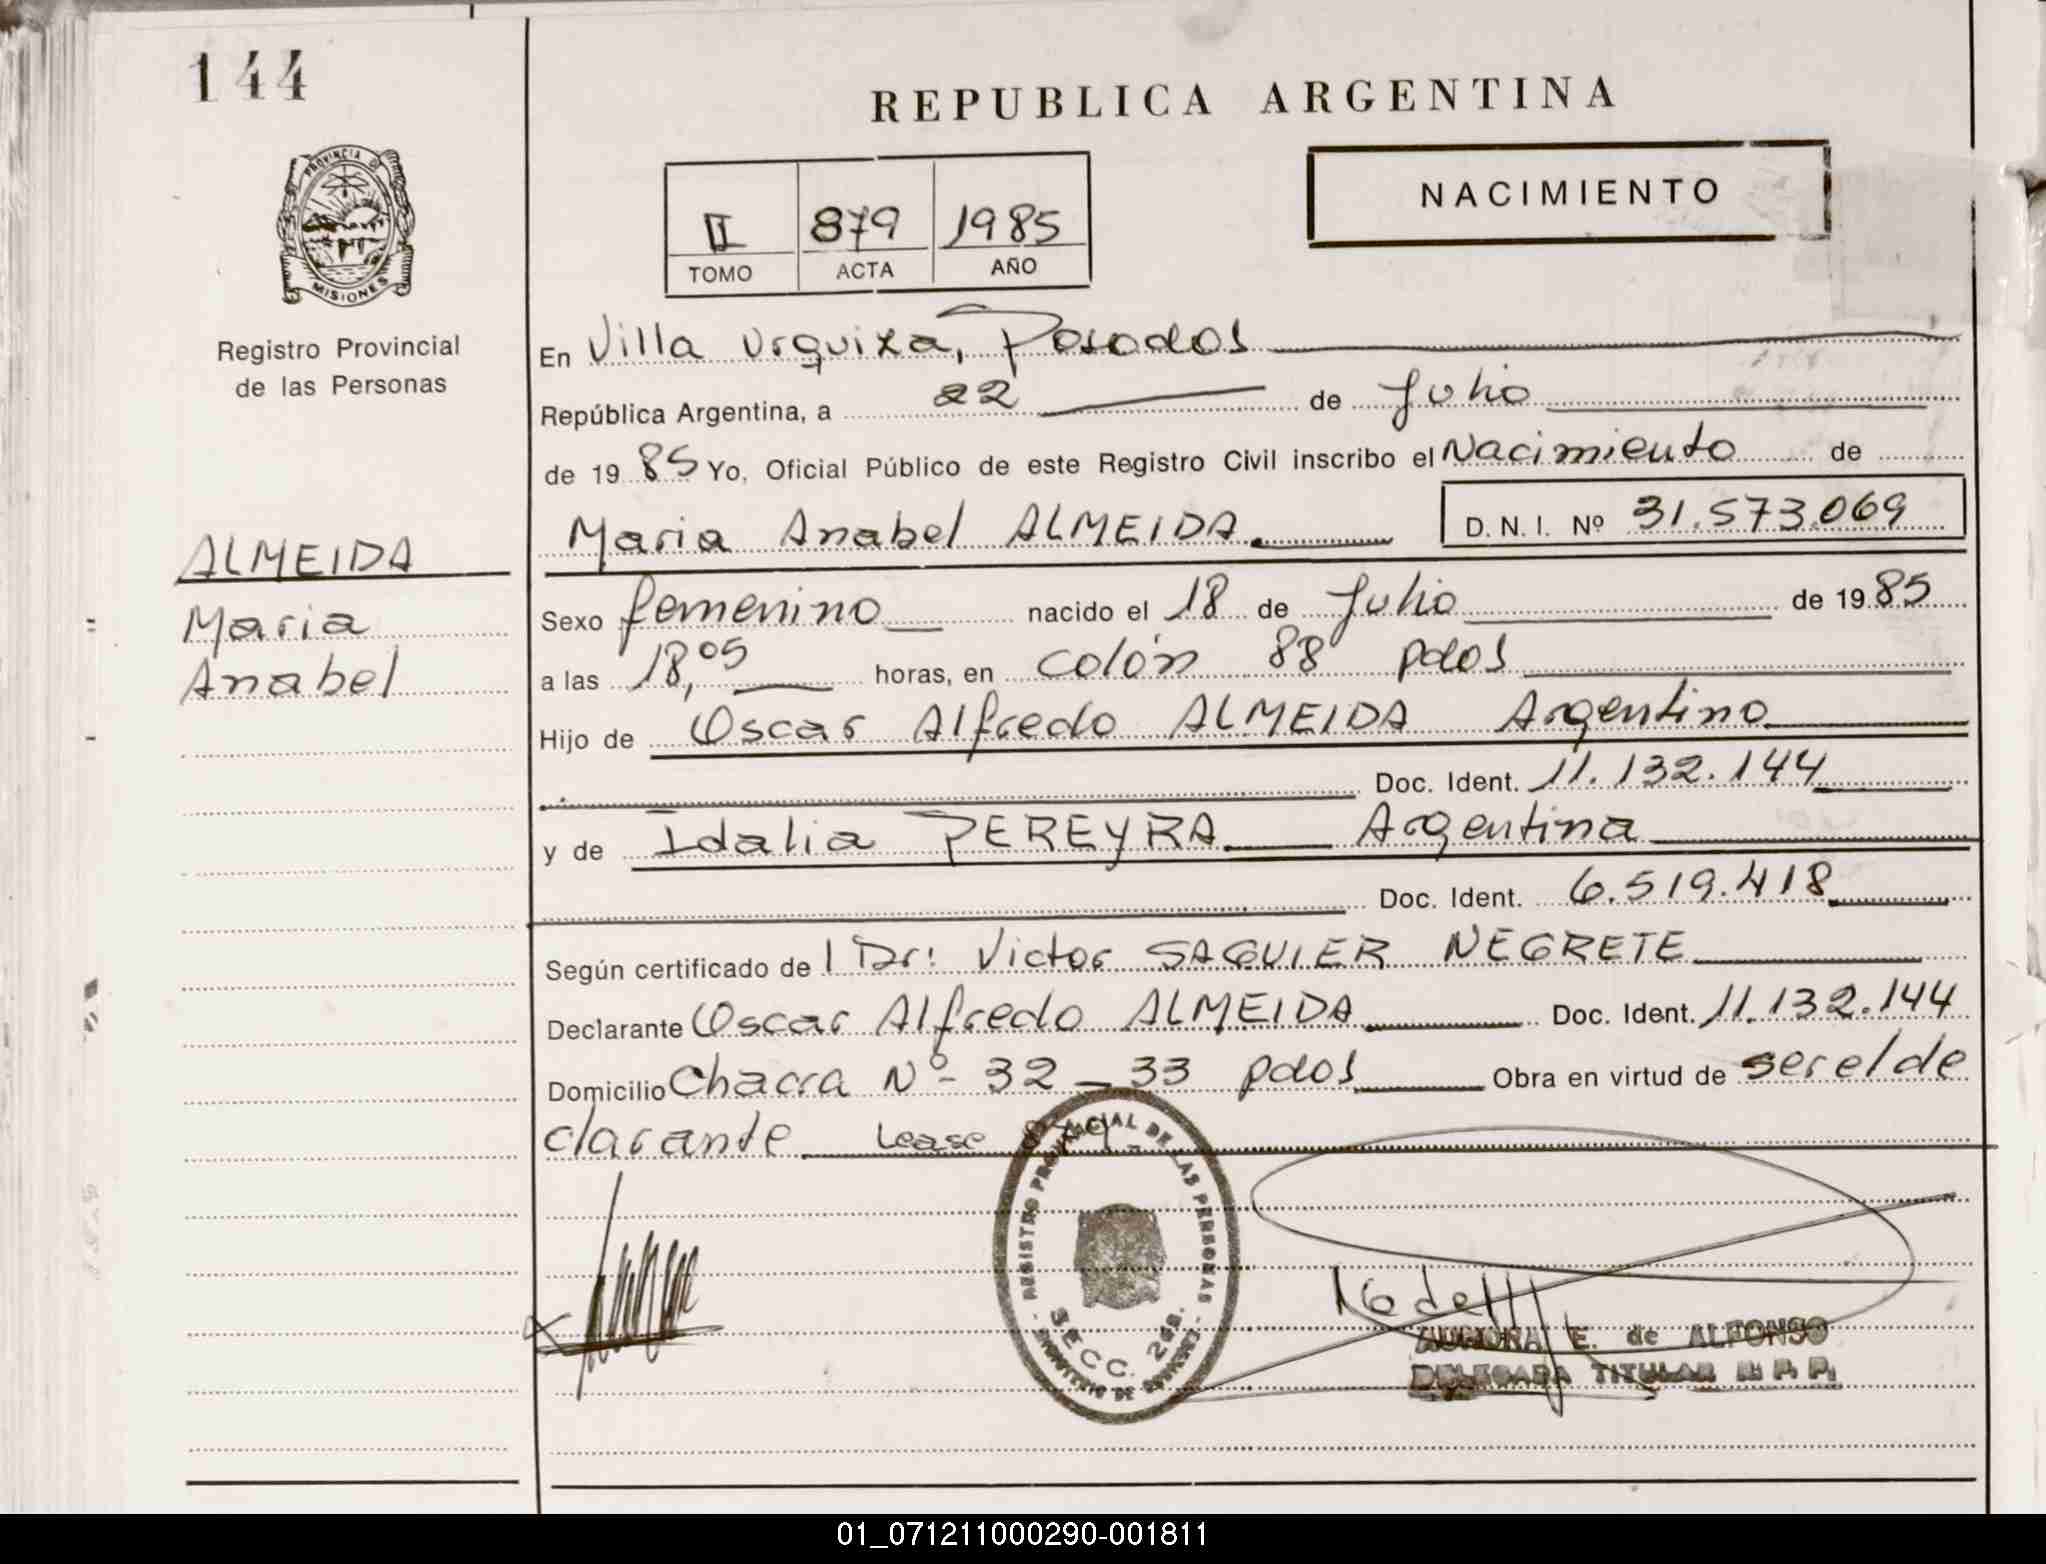 144
REPUBLICA ARGENTINA
NACIMIENTO
II 879 1985
TOMO ACTA AÑO
PROVINCIA D
MISIONES
Registro Provincial
de las Personas
ALMEIDA
Maria
Anabel
En Villa Urquiza, Posadas
República Argentina, a 22 de Julio
de 1985 Yo, Oficial Público de este Registro Civil inscribo el Nacimiento de
Maria Anabel ALMEIDA. D. N. I. Nº 31.573.069
Sexo femenino nacido el 18 de Julio de 1985
a las 18,05 horas, en Colón 88 pdas
Hijo de Oscar Alfredo ALMEIDA Argentino
Doc. Ident. 11.132.144
y de Idalia PEREYRA Argentina
Doc. Ident. 6.519.418
Según certificado de l Dr: Victor SAGUIER NEGRETE
Declarante Oscar Alfredo ALMEIDA Doc. Ident. 11.132.144
Domicilio Chacra Nº 32-33 pdas Obra en virtud de ser el de
clarante Lease 879
REGISTRO PROVINCIAL DE LAS PERSONAS
SECC.
MINISTERIO DE GOBIERNO
AURORA E. de ALFONSO
DELEGADA TITULAR R. P. P.
01_071211000290-001811